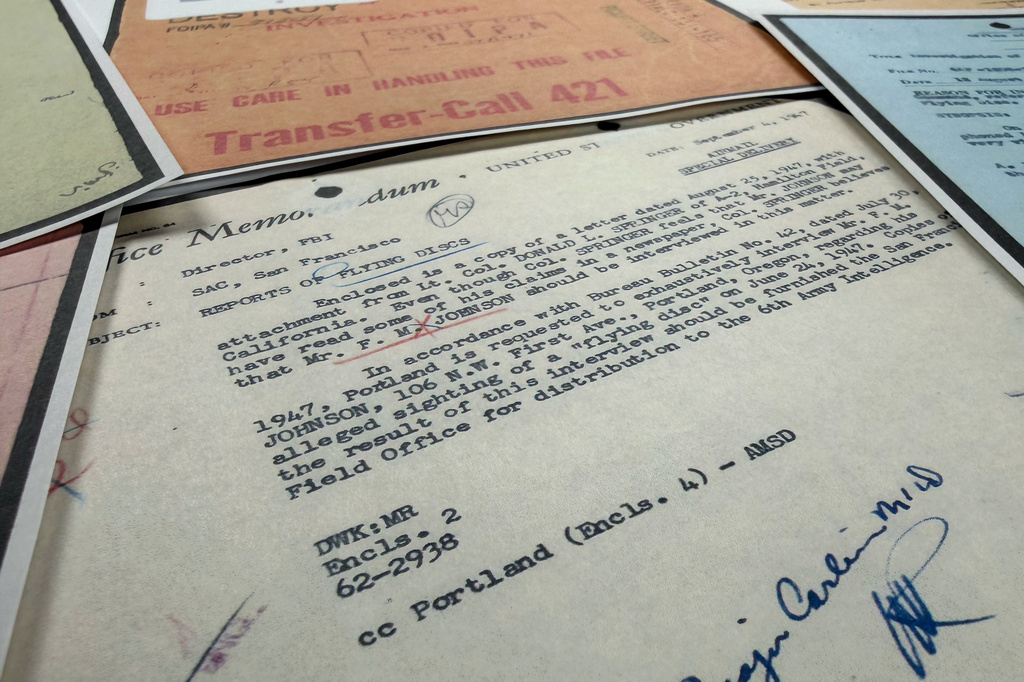 DESTROY
FOIPA #
INVESTIGATION
USE CARE IN HANDLING THIS FILE
Transfer-Call 421
Office Memorandum • UNITED ST GOVERNMENT
Director, FBI
DATE: September 4, 1947
SAC, San Francisco
AIRMAIL
SPECIAL DELIVERY
BJECT: REPORTS OF FLYING DISCS
Enclosed is a copy of a letter dated August 25, 1947, with
attachment from Lt. Col. DONALD L. SPRINGER of A-2, Hamilton Field,
California. Even though Col. SPRINGER feels that Mr. JOHNSON may
have read some of his claims in a newspaper, Col. SPRINGER believes
that Mr. F. M. JOHNSON should be interviewed in this matter.
In accordance with Bureau Bulletin No. 42, dated July 30,
1947, Portland is requested to exhaustively interview Mr. F. M.
JOHNSON, 106 N.W. First Ave., Portland, Oregon, regarding his
alleged sighting of a "flying disc" on June 24, 1947. Copies of
the result of this interview should be furnished the San Francisco
Field Office for distribution to the 6th Army Intelligence.
DWK:MR
Encls. 2
62-2938
cc Portland (Encls. 4) - AMSD
File No.
Date
REASON FOR
SYNOPSIS: